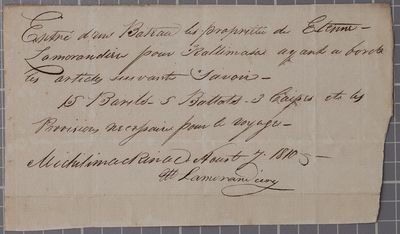 Entré d'un Bateau les propriété de Etienne
Lamorandiere pour Kallimasa ayand a borde
les articles suivants Savoir —
15 Barils — 5 Ballots — 3 Caises et les
Provisions necessaire pour le voyage —
Michilimackinac Aoust 7. 1810 —
Ett Lamorandiere